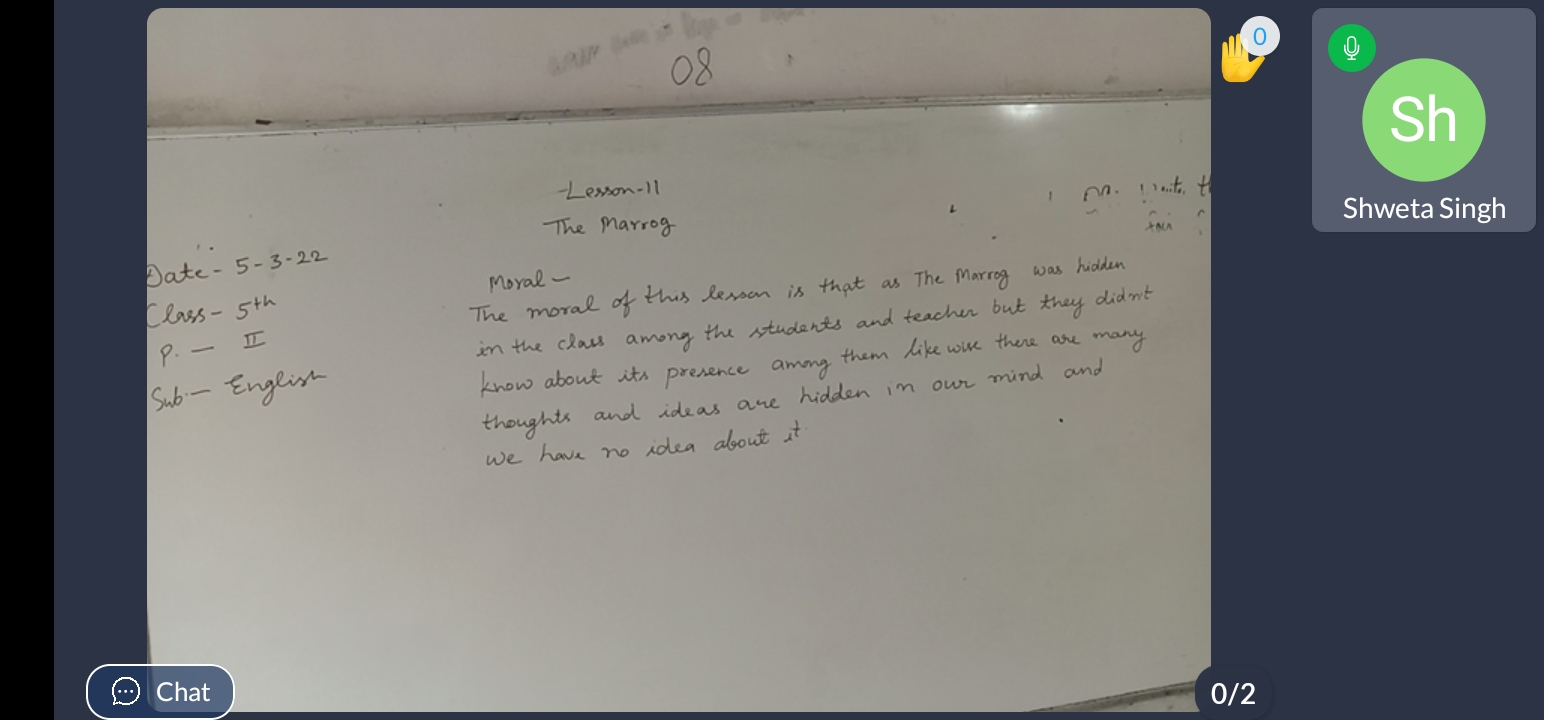 08
Lesson-11
The Marrog
Date - 5-3-22
Class - 5th
P. - II
Sub - English
Moral -
The moral of this lesson is that as The Marrog was hidden
in the class among the students and teacher but they didn't
know about its presence among them like wise there are many
thoughts and ideas are hidden in our mind and
we have no idea about it.
0
Sh
Shweta Singh
Chat
0/2